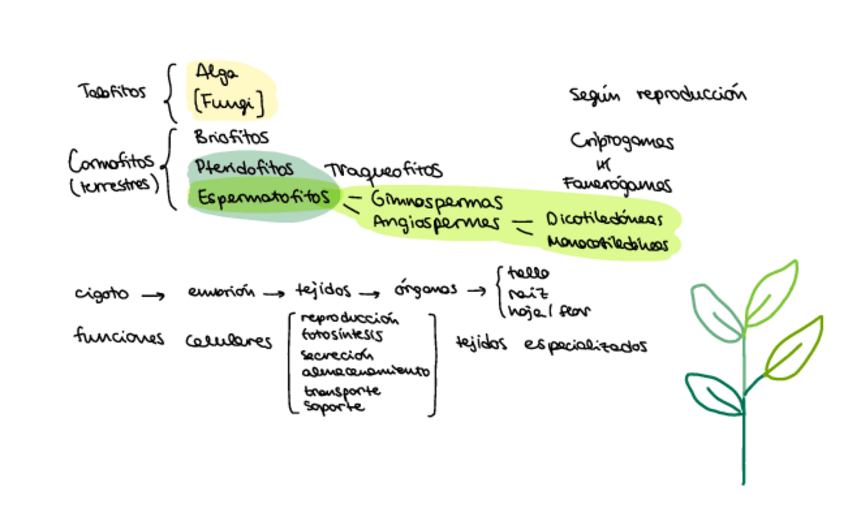 Talofitos
Alga
[Fungi]
Cormofitos
(terrestres)
Briofitos
Pteridofitos Traqueofitos
Espermatofitos — Gimnospermas
Angiospermas — Dicotiledóneas
Monocotiledóneas
Según reproducción
Criptogamas
vs
Fanerógamas
cigoto → embrión → tejidos → órganos →
tallo
raiz
hoja / flor
funciones celulares
reproducción
fotosíntesis
secreción
almacenamiento
transporte
soporte
tejidos especializados